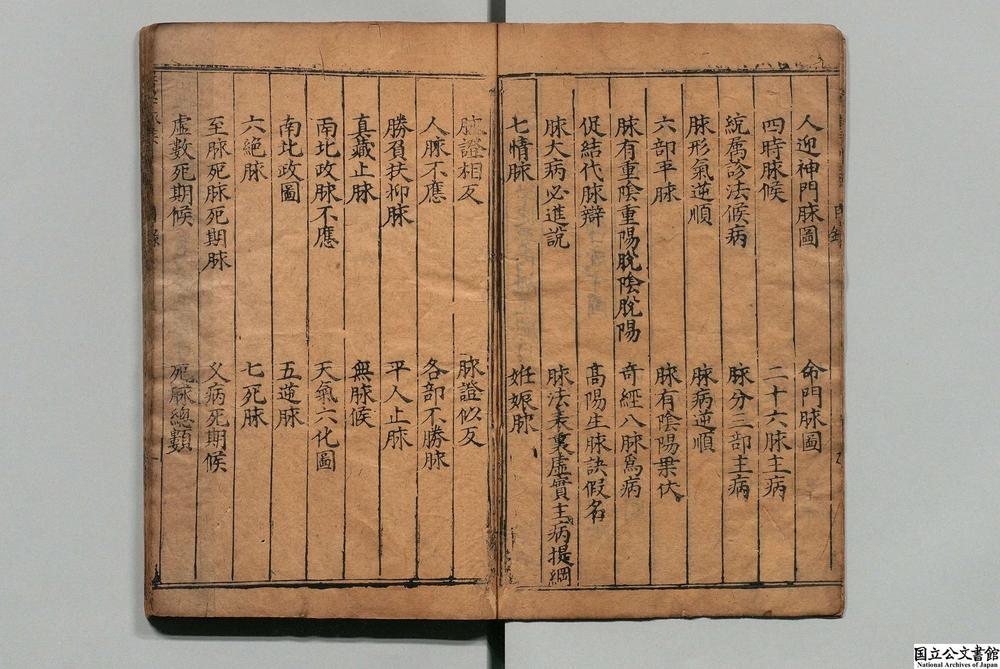 人迎神門脉圖　命門脉圖
四時脉候　二十六脉主病
統属診法候病　脉分三部主病
脉形氣逆順　脉病逆順
六部平脉　脉有陰陽乗伏
脉有重陰重陽脫陰脫陽　奇經八脉爲病
促結代脉辯　髙陽生脉訣假名
脉大病必進説　脉法表裏虛實主病提綱
七情脉　妊娠脉
脉證相反　脉證似反
人脉不應　各部不勝脉
勝負扶抑脉　平人止脉
真藏止脉　無脉候
南北政脉不應　天氣六化圖
南北政圖　五逆脉
六絶脉　七死脉
至脉死脉死期脉　久病死期候
虛數死期候　死脉總類
国立公文書館
National Archives of Japan